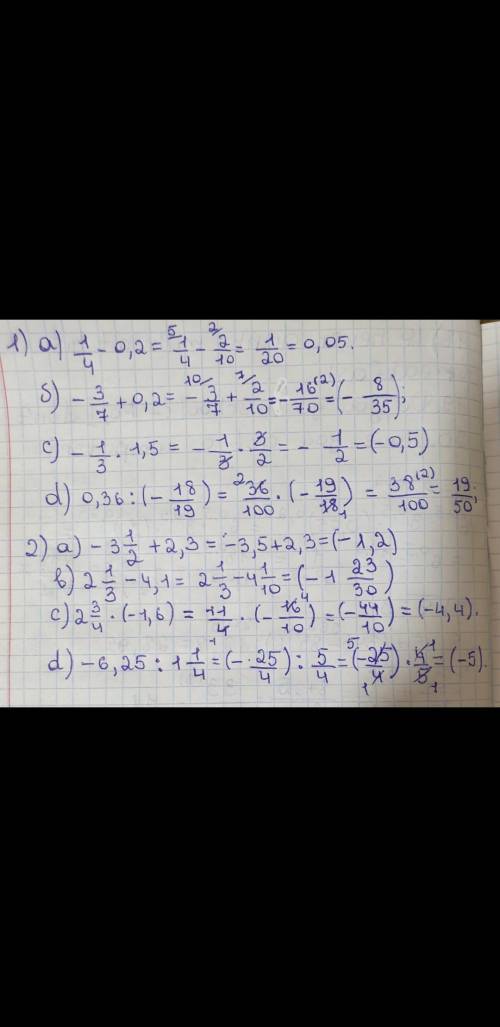 1) a) 1/4 - 0,2 = ⁵⁄1/4 - ²⁄2/10 = 1/20 = 0,05.
б) - 3/7 + 0,2 = - ¹⁰⁄3/7 + ⁷⁄2/10 = - 16⁽²⁾/70 = (- 8/35);
c) - 1/3 · 1,5 = - 1/3 · 3/2 = - 1/2 = (-0,5)
d) 0,36 : (- 18/19) = ²36/100 · (- 19/18₁) = 38⁽²⁾/100 = 19/50;
2) a) - 3 1/2 + 2,3 = -3,5 + 2,3 = (-1,2)
b) 2 1/3 - 4,1 = 2 1/3 - 4 1/10 = (-1 23/30)
c) 2 3/4 · (-1,6) = 11/4₁ · (- 16⁴/10) = (- 44/10) = (-4,4).
d) - 6,25 : 1 1/4 = (- 25/4) : 5/4 = (- ⁵25/4₁) · 4¹/5₁ = (-5).